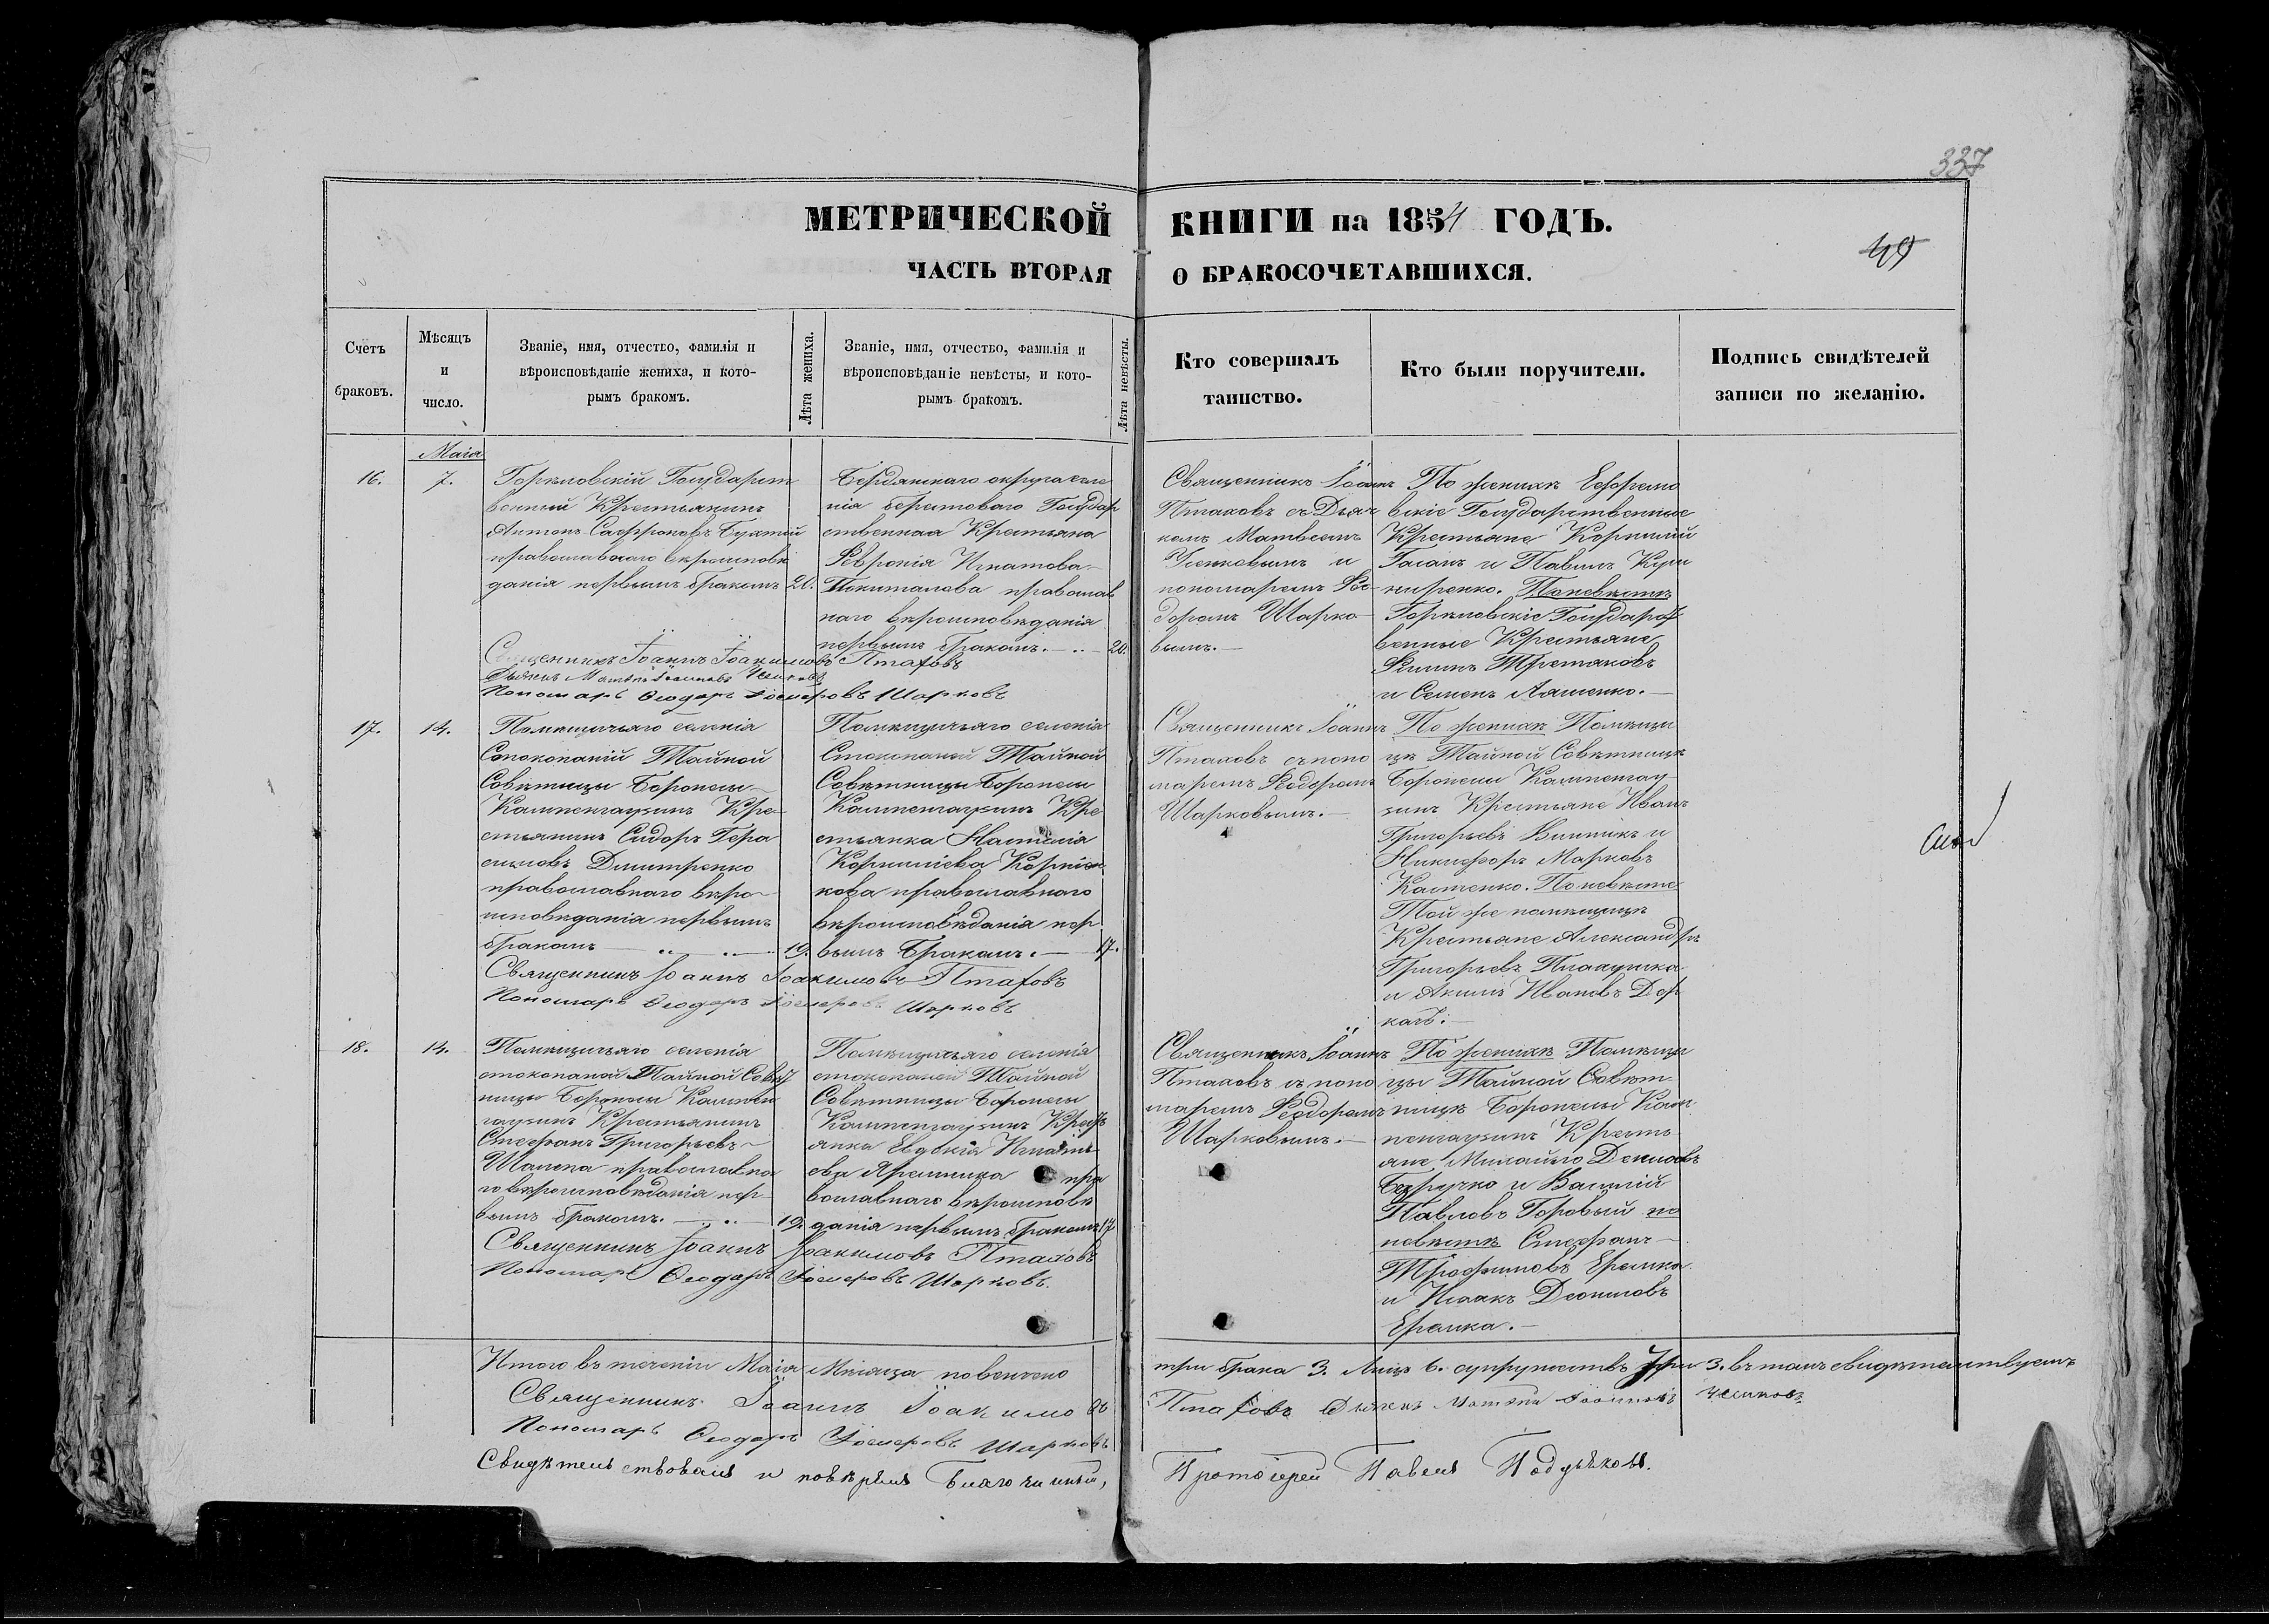 337
МЕТРИЧЕСКОЙ КНИГИ на 1854 ГОДЪ.
49
ЧАСТЬ ВТОРАЯ О БРАКОСОЧЕТАВШИХСЯ.
Счетъ браковъ.
Мѣсяцъ и число.
Званіе, имя, отчество, фамилія и
вѣроисповѣданіе жениха, и кото-
рымъ бракомъ.
Лѣта жениха.
Званіе, имя, отчество, фамилія и
вѣроисповѣданіе невѣсты, и кото-
рымъ бракомъ.
Лѣта невѣсты.
Кто совершалъ
таинство.
Кто были поручители.
Подпись свидѣтелей
записи по желанію.
Маія
16.
7.
Горѣловскій Государст
венный Крестьянинъ
Антонъ Сафроновъ
православнаго вѣроисповѣ
данія первымъ бракомъ 20.
Бердянскаго округа селе
нія берестоваго Государ
ственная Крестьянка
Февронія Игнатова
православ
наго вѣроисповѣданія
первымъ бракомъ. 20.
Священникъ Іоаннъ
Птаховъ съ Дьяч
комъ Матвеемъ
и
пономаремъ Фео
доромъ Шарко
вымъ.
По женихѣ Ефремо
вскіе Государственные
Крестьяне Корнилій
и Павелъ
По невѣстѣ
Горѣловскіе Государст
венные Крестьяне
Третяковъ
и Семенъ Ляшенко.
Священникъ Іоаннъ Іоакимовъ Птаховъ
Пономарь Ѳеодоръ Шарковъ
17.
14.
Помѣщичьяго селенія
Стокопаній Тайной
Совѣтницы Баронесы
Кампенгаузинъ Кре
стьянинъ Сидоръ Гера
симовъ Дмитренко
православнаго вѣро
исповѣданія первымъ
бракомъ 19.
Помѣщичьяго селенія
Стокопаней Тайной
Совѣтницы Баронесы
Кампенгаузинъ Кре
стьянка Настасія
Корниліева
православнаго
вѣроисповѣданія пер
вымъ бракомъ. 17.
Священникъ Іоаннъ
Птаховъ съ поно
маремъ Феодоромъ
Шарковымъ.
По женихѣ Помѣщи
цѣ Тайной Совѣтницѣ
Баронесы Кампенгау
зинъ Крестьяне Иванъ
Григорьевъ Винникъ и
Никифоръ Марковъ
Костенко. По невѣсте
Той же помѣщицѣ
Крестьяне Александръ
Григорьевъ
и Акимъ Ивановъ Дер
качъ.
Священникъ Іоаннъ Іоакимовъ Птаховъ
Пономарь Ѳеодоръ Шарковъ
18.
14.
Помѣщичьяго селенія
стокопаной Тайной Совѣт
ницы Баронесы Кампен
гаузинъ Крестьянинъ
Стефанъ Григорьевъ
православна
го вѣроисповѣданія пер
вымъ бракомъ. 19.
Помѣщичьяго селенія
стокопаней Тайной
Совѣтницы Баронесы
Кампенгаузинъ Кресть
янка Евдокія Игнатье
ва Яремника пра
вославнаго вѣроисповѣ
данія первымъ бракомъ 17
Священникъ Іоаннъ
Птаховъ съ поно
маремъ Феодоромъ
Шарковымъ.
По женихѣ Помѣщи
цы Тайной Совѣт
ницѣ Баронесы Кам
пенгаузинъ Кресть
яне Михайло Денисовъ
Безручко и Василій
Павловъ Горовый по
невѣстѣ Стефанъ
Трофимовъ Еремка
и Исаакъ
Еремка.
Священникъ Іоаннъ Іоакимовъ Птаховъ
Пономарь Ѳеодоръ Шарковъ.
Итого въ теченіи Маія Мѣсяца повѣнчено три брака 3. Лицъ 6. супружествъ три 3. въ томъ свидѣтельствуемъ
Священникъ Іоаннъ Іоакимовъ Птаховъ
Пономарь Ѳеодоръ Шарковъ
Свидѣтельствовалъ и повѣрялъ Благочинный, Протоіерей Павелъ